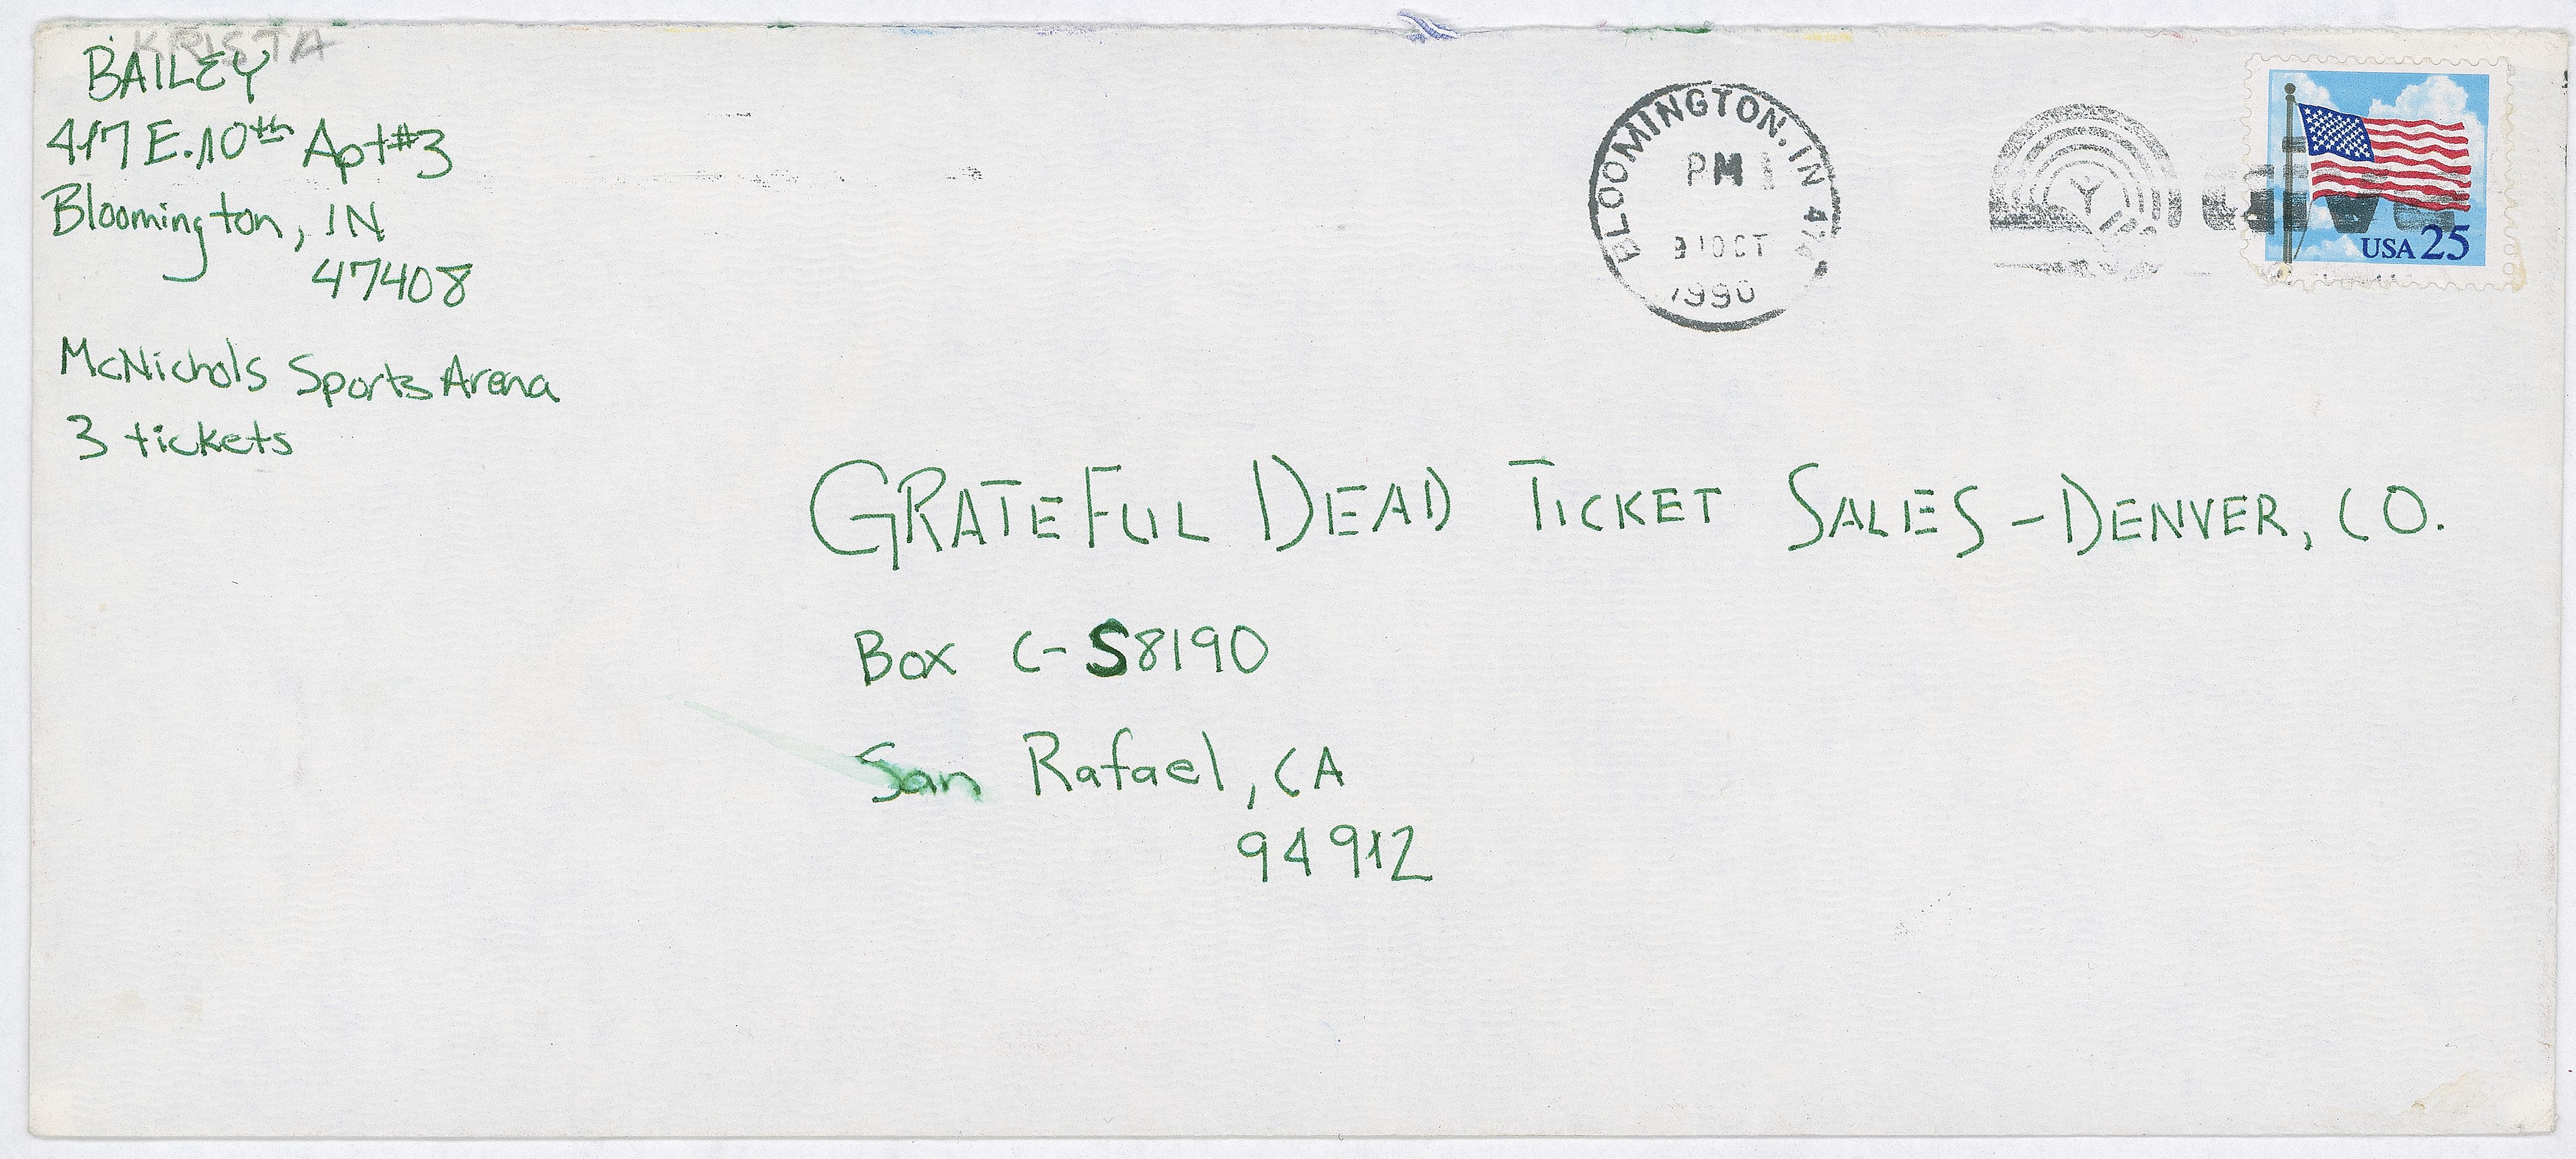 KRISTA
BAILEY
417 E. 10th Apt #3
Bloomington, IN
47408
McNichols Sports Arena
3 tickets
BLOOMINGTON, IN
PM
31 OCT
1990
USA 25
GRATEFUL DEAD TICKET SALES - DENVER, CO.
Box C-S8190
San Rafael, CA
94912